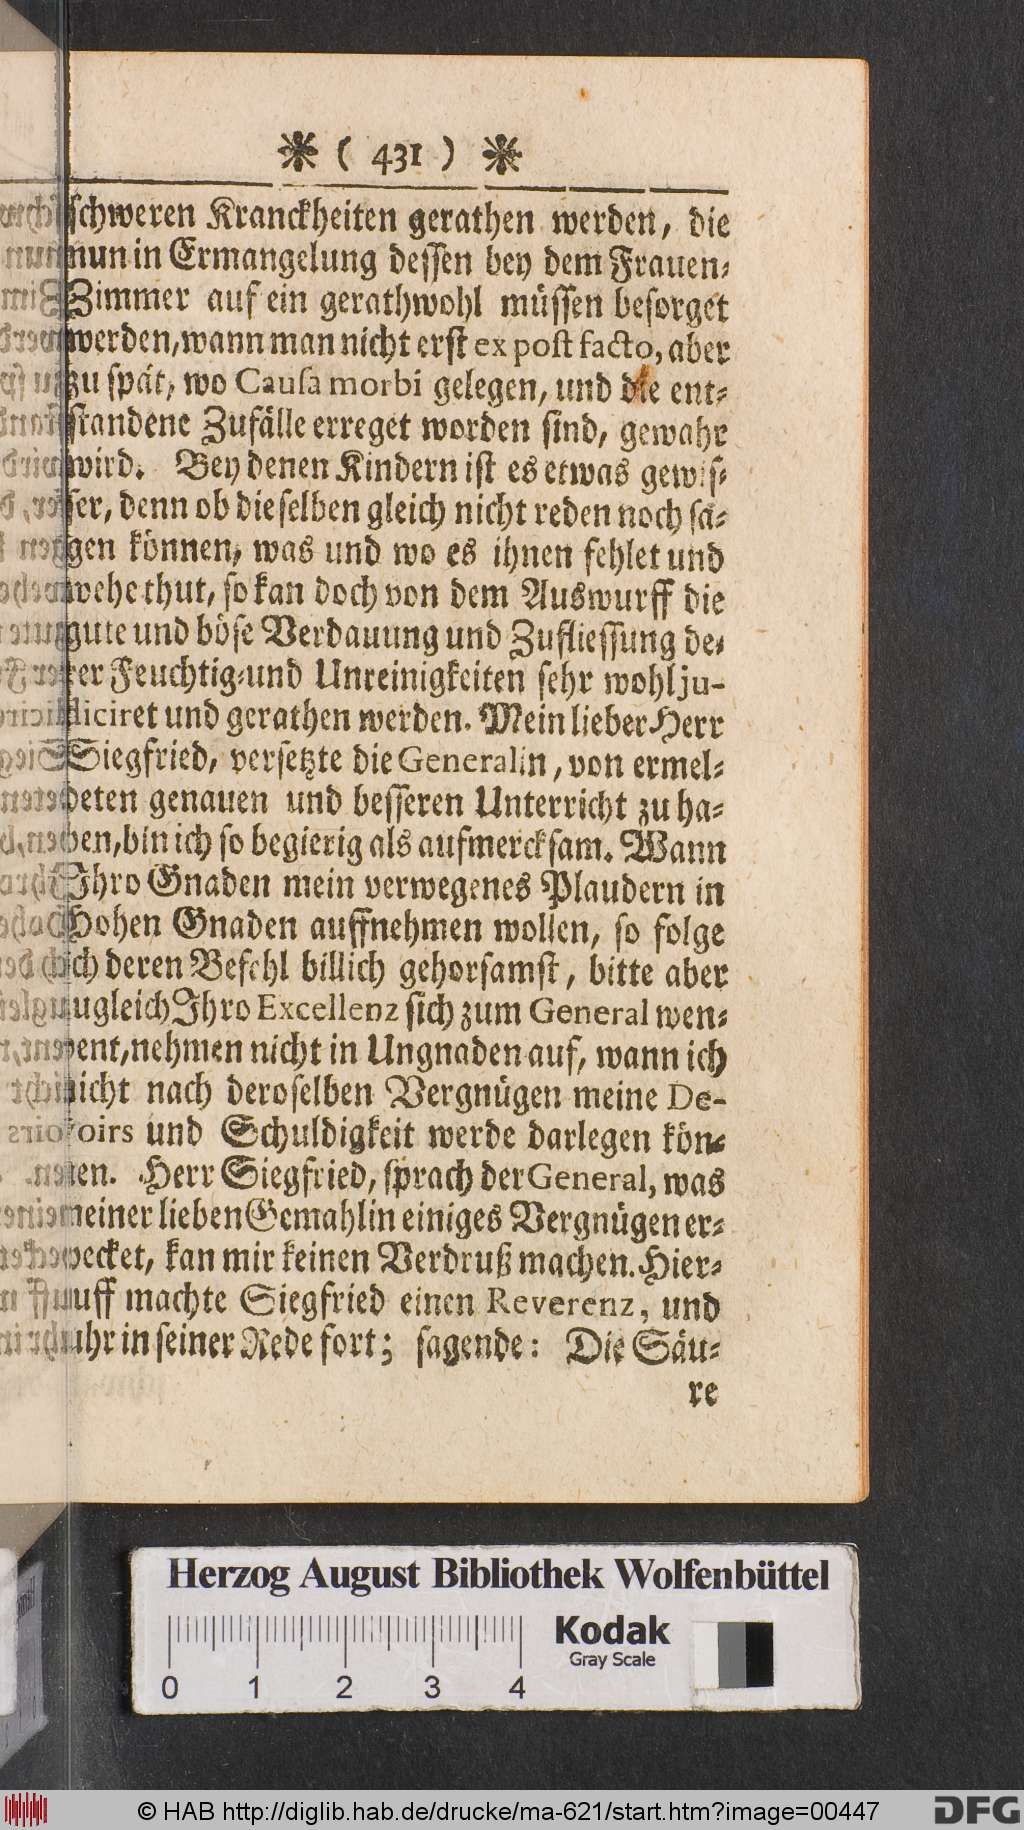 ❋ ( 431 ) ❋
schweren Kranckheiten gerathen werden, die
nun in Ermangelung dessen bey dem Frauen-
Zimmer auf ein gerathwohl müssen besorget
werden, wann man nicht erst ex post facto, aber
zu spät, wo Causa morbi gelegen, und die ent-
standene Zufälle erreget worden sind, gewahr
wird. Bey denen Kindern ist es etwas gewis-
ser, denn ob dieselben gleich nicht reden noch sa-
gen können, was und wo es ihnen fehlet und
wehe thut, so kan doch von dem Auswurff die
gute und böse Verdauung und Zufliessung de-
rer Feuchtig- und Unreinigkeiten sehr wohl ju-
diciret und gerathen werden. Mein lieber Herr
Siegfried, versetzte die Generalin, von ermel-
deten genauen und besseren Unterricht zu ha-
ben, bin ich so begierig als aufmercksam. Wann
Ihro Gnaden mein verwegenes Plaudern in
Hohen Gnaden auffnehmen wollen, so folge
ich deren Befehl billich gehorsamst, bitte aber
zugleich Ihro Excellenz sich zum General wen-
dent, nehmen nicht in Ungnaden auf, wann ich
nicht nach deroselben Vergnügen meine De-
voirs und Schuldigkeit werde darlegen kön-
nen. Herr Siegfried, sprach der General, was
meiner lieben Gemahlin einiges Vergnügen er-
wecket, kan mir keinen Verdruß machen. Hier-
auff machte Siegfried einen Reverenz, und
fuhr in seiner Rede fort; sagende: Die Säu-
re
Herzog August Bibliothek Wolfenbüttel
Kodak
Gray Scale
0 1 2 3 4
© HAB http://diglib.hab.de/drucke/ma-621/start.htm?image=00447
DFG